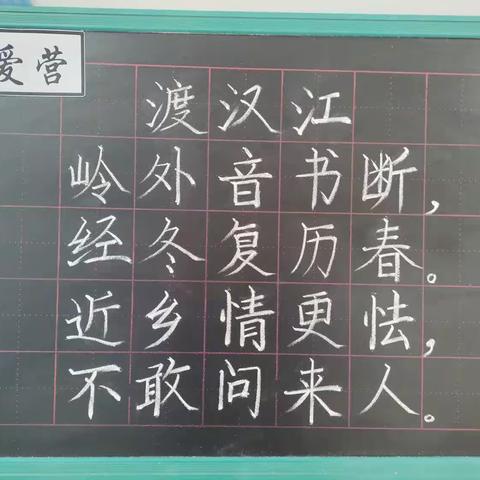 爱营
渡汉江
岭外音书断，
经冬复历春。
近乡情更怯，
不敢问来人。